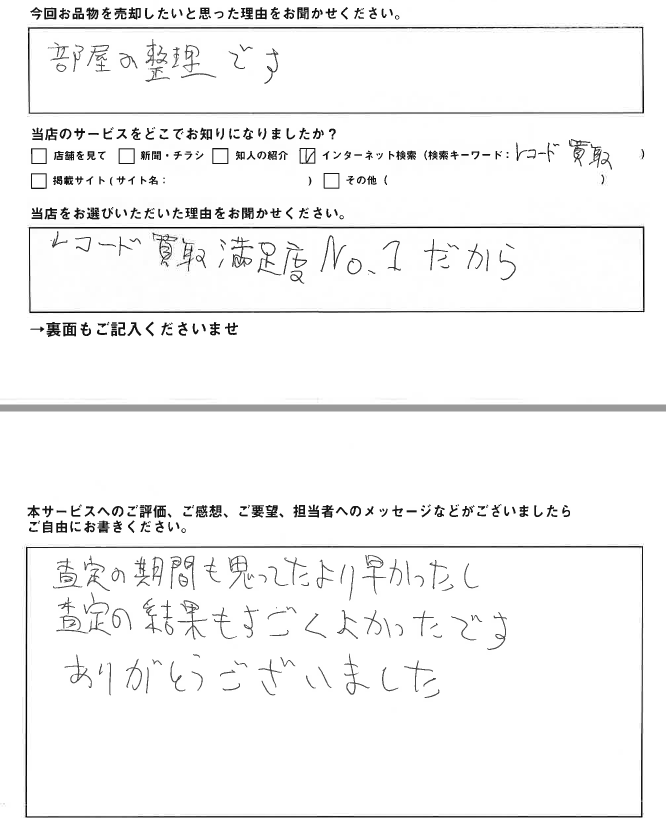 今回お品物を売却したいと思った理由をお聞かせください。
部屋の整理です
当店のサービスをどこでお知りになりましたか?
□ 店舗を見て □ 新聞・チラシ □ 知人の紹介 ☑ インターネット検索(検索キーワード:レコード買取 )
□ 掲載サイト(サイト名: ) □ その他( )
当店をお選びいただいた理由をお聞かせください。
レコード買取満足度No.1だから
→裏面もご記入くださいませ
本サービスへのご評価、ご感想、ご要望、担当者へのメッセージなどがございましたら
ご自由にお書きください。
査定の期間も思ってたより早かったし
査定の結果もすごくよかったです
ありがとうございました